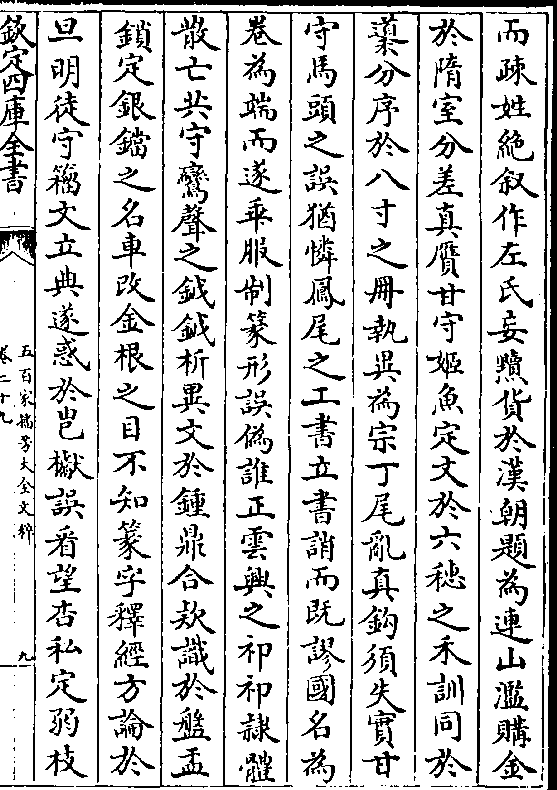 而疎姓絶叙作左氏妄黷貨於漢朝題為連山濫購金
於隋室分差真贋甘守姬魚定文於六穗之禾訓同於
䆃分序於八寸之冊執異為宗丁尾亂真鈎須失實甘
守馬頭之誤猶憐鳳尾之工書立書誚而既謬國名為
卷為端而遂乖服制篆形誤偽誰正雲興之祁祁隷體
散亡共守鸞聲之鉞鉞析異文於鍾鼎合欵識於盤盂
鎖定銀鐺之名車改金根之目不知篆字釋經方論於
旦明徒守籀文立典遂惑於岂獻誤看望杏私定弱枝
欽定四庫全書
五百家播芳大全文粹
卷二十九
九